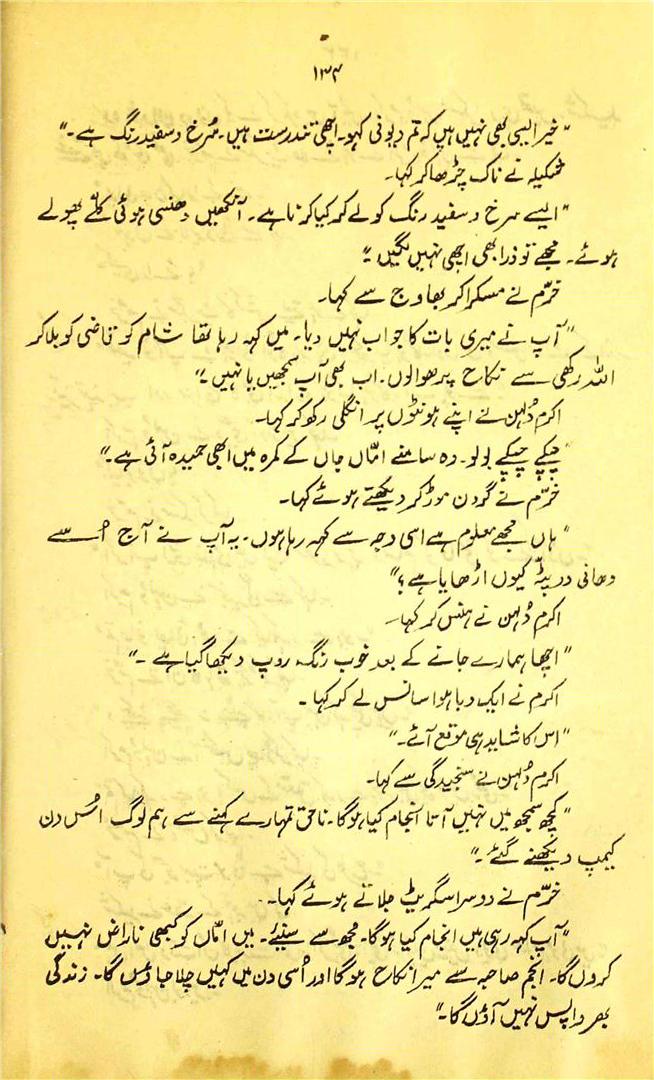 ۱۳۴
"خیر ایسی بھی نہیں ہیں کہ تم دیونی کہو۔ اچھی تندرست ہیں۔ سُرخ و سفید رنگ ہے۔"
شکیلہ نے ناک چڑھا کر کہا۔
"ایسے سرخ و سفید رنگ کو لے کر کیا کرنا ہے۔ آنکھیں دھنسی ہوئی کلّے پھولے
ہوئے۔ مجھے تو ذرا بھی اچھی نہیں لگیں"
خرّم نے مسکرا کر بھاوج سے کہا۔
"آپ نے میری بات کا جواب نہیں دیا۔ میں کہہ رہا تھا شام کو قاضی کو بلا کر
اللہ رکھی سے نکاح پڑھوا لوں۔ اب بھی آپ سمجھیں یا نہیں"
اکرم دُلہن نے اپنے ہونٹوں پر انگلی رکھ کر کہا۔
"چپکے چپکے بولو۔ وہ سامنے امّاں جاں کے کمرہ میں ابھی حمیدہ آئی ہے۔"
خرّم نے گردن موڑ کر دیکھتے ہوئے کہا۔
"ہاں مجھے معلوم ہے اسی وجہ سے کہہ رہا ہوں۔ یہ آپ نے آج اُسے
دھانی دوپٹّہ کیوں اڑھایا ہے؟"
اکرم دُلہن نے ہنس کر کہا۔
"اچھا ہمارے جانے کے بعد خوب رنگ روپ دیکھا گیا ہے۔"
اکرم نے ایک دبا ہوا سانس لے کر کہا۔
"اس کا شاید ہی موقع آئے۔"
اکرم دُلہن نے سنجیدگی سے کہا۔
"کچھ سمجھ میں نہیں آتا انجام کیا ہوگا۔ ناحق تمہارے کہنے سے ہم لوگ اُس دن
کیمپ دیکھنے گئے۔"
خرّم نے دوسرا سگریٹ جلاتے ہوئے کہا۔
"آپ کہہ رہی ہیں انجام کیا ہوگا۔ مجھ سے سنیئے۔ میں امّاں کو کبھی ناراض نہیں
کروں گا۔ انجم صاحبہ سے میرا نکاح ہوگا اور اُسی دن میں کہیں چلا جاؤں گا۔ زندگی
بھر واپس نہیں آؤں گا۔"